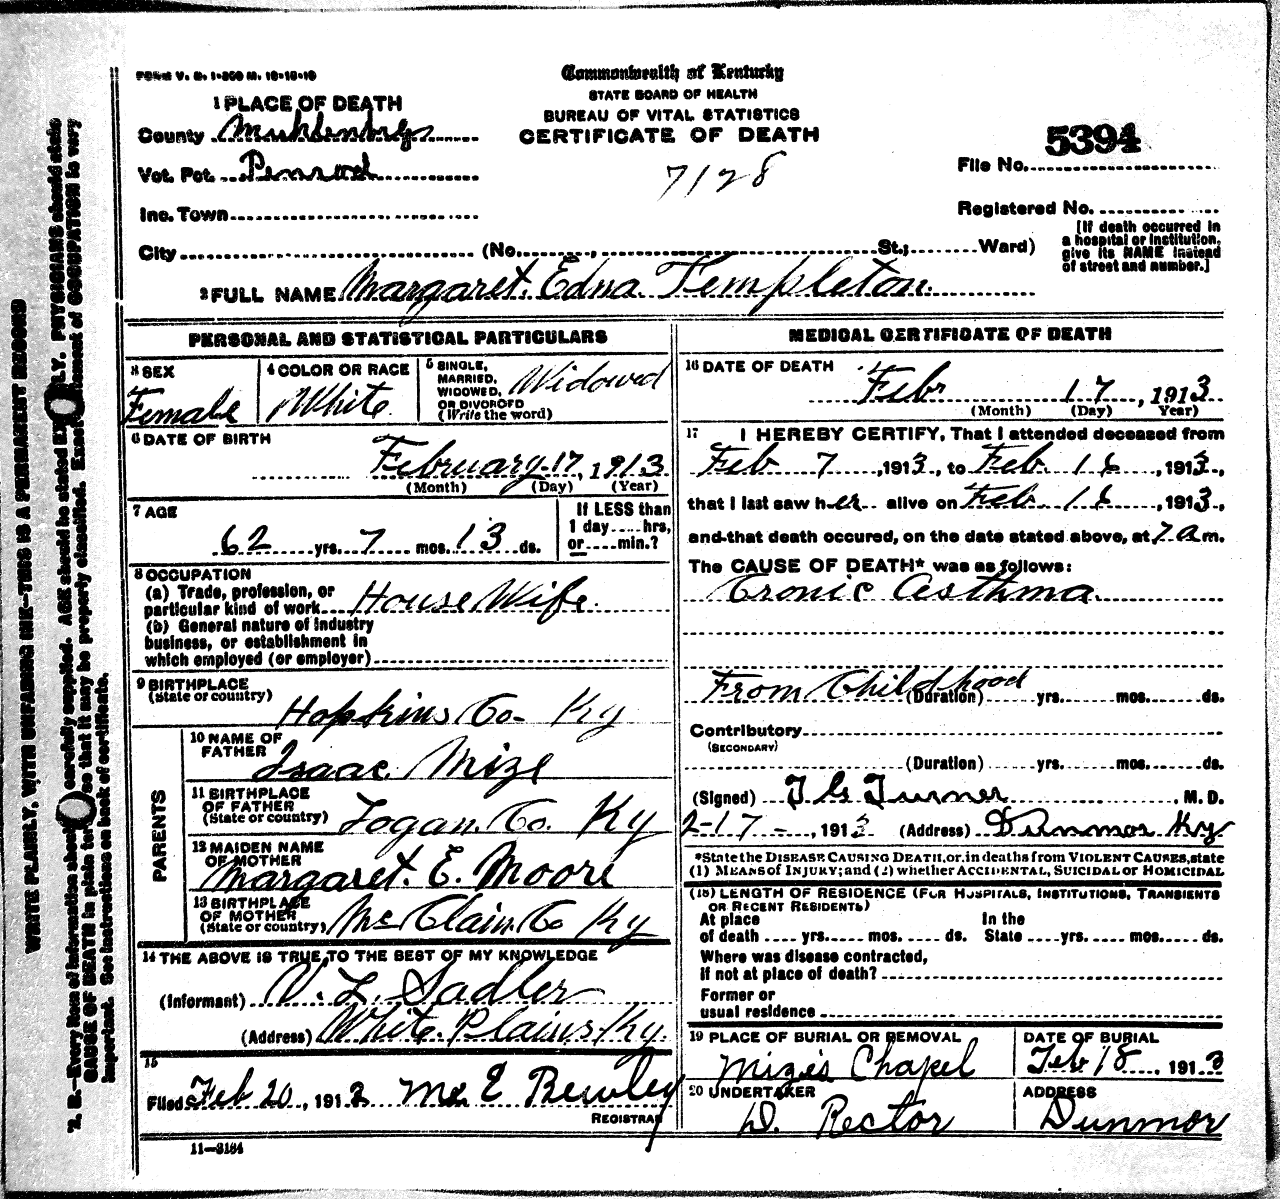 FORM V. S. 1-350 M. 10-18-10
Commonwealth of Kentucky
STATE BOARD OF HEALTH
BUREAU OF VITAL STATISTICS
CERTIFICATE OF DEATH
1 PLACE OF DEATH
County Muhlenburg
Vot. Pct. Penrod
Inc. Town
City (No. St.; Ward)
7128
5394
File No.
Registered No.
[If death occurred in
a hospital or institution,
give its NAME instead
of street and number.]
2 FULL NAME Margaret. Edna Templeton.
PERSONAL AND STATISTICAL PARTICULARS
3 SEX
Female
4 COLOR OR RACE
White
5 SINGLE,
MARRIED,
WIDOWED,
OR DIVORCED
(Write the word)
Widowed
6 DATE OF BIRTH
February 17, 1913
(Month) (Day) (Year)
7 AGE
62 yrs. 7 mos. 13 ds.
If LESS than
1 day.....hrs,
or.....min.?
8 OCCUPATION
(a) Trade, profession, or
particular kind of work House Wife
(b) General nature of industry
business, or establishment in
which employed (or employer)
9 BIRTHPLACE
(State or country)
Hopkins Co- Ky
PARENTS
10 NAME OF
FATHER
Isaac Mize
11 BIRTHPLACE
OF FATHER
(State or country)
Logan. Co. Ky
12 MAIDEN NAME
OF MOTHER
Margaret. E. Moore
13 BIRTHPLACE
OF MOTHER
(State or country)
Mc Clain Co Ky
14 THE ABOVE IS TRUE TO THE BEST OF MY KNOWLEDGE
(Informant) V. L. Sadler
(Address) White Plains Ky.
15
Filed Feb 20, 1913 E Bewley
REGISTRAR
11-3184
MEDICAL CERTIFICATE OF DEATH
16 DATE OF DEATH
Febr 17, 1913
(Month) (Day) (Year)
17 I HEREBY CERTIFY, That I attended deceased from
Feb 7, 1913, to Feb. 16, 1913,
that I last saw her alive on Feb 16, 1913,
and that death occured, on the date stated above, at 7 a m.
The CAUSE OF DEATH* was as follows:
Cronic asthma
From Childhood
(Duration) yrs. mos. ds.
Contributory
(SECONDARY)
(Duration) yrs. mos. ds.
(Signed) T G Turner, M. D.
2-17-, 1913 (Address) Dunmor Ky
*State the DISEASE CAUSING DEATH, or, in deaths from VIOLENT CAUSES, state
(1) MEANS of INJURY; and (2) whether ACCIDENTAL, SUICIDAL or HOMICIDAL
(18) LENGTH OF RESIDENCE (FOR HOSPITALS, INSTITUTIONS, TRANSIENTS
OR RECENT RESIDENTS)
At place of death yrs. mos. ds. In the State yrs. mos. ds.
Where was disease contracted,
if not at place of death?
Former or
usual residence
19 PLACE OF BURIAL OR REMOVAL
Mizes Chapel
DATE OF BURIAL
Feb 18, 1913
20 UNDERTAKER
D. Rector
ADDRESS
Dunmor
WRITE PLAINLY, WITH UNFADING INK—THIS IS A PERMANENT RECORD
N. B.—Every item of information should be carefully supplied. AGE should be stated EXACTLY. PHYSICIANS should state
CAUSE OF DEATH in plain terms, so that it may be properly classified. Exact statement of OCCUPATION is very
important. See instructions on back of certificate.